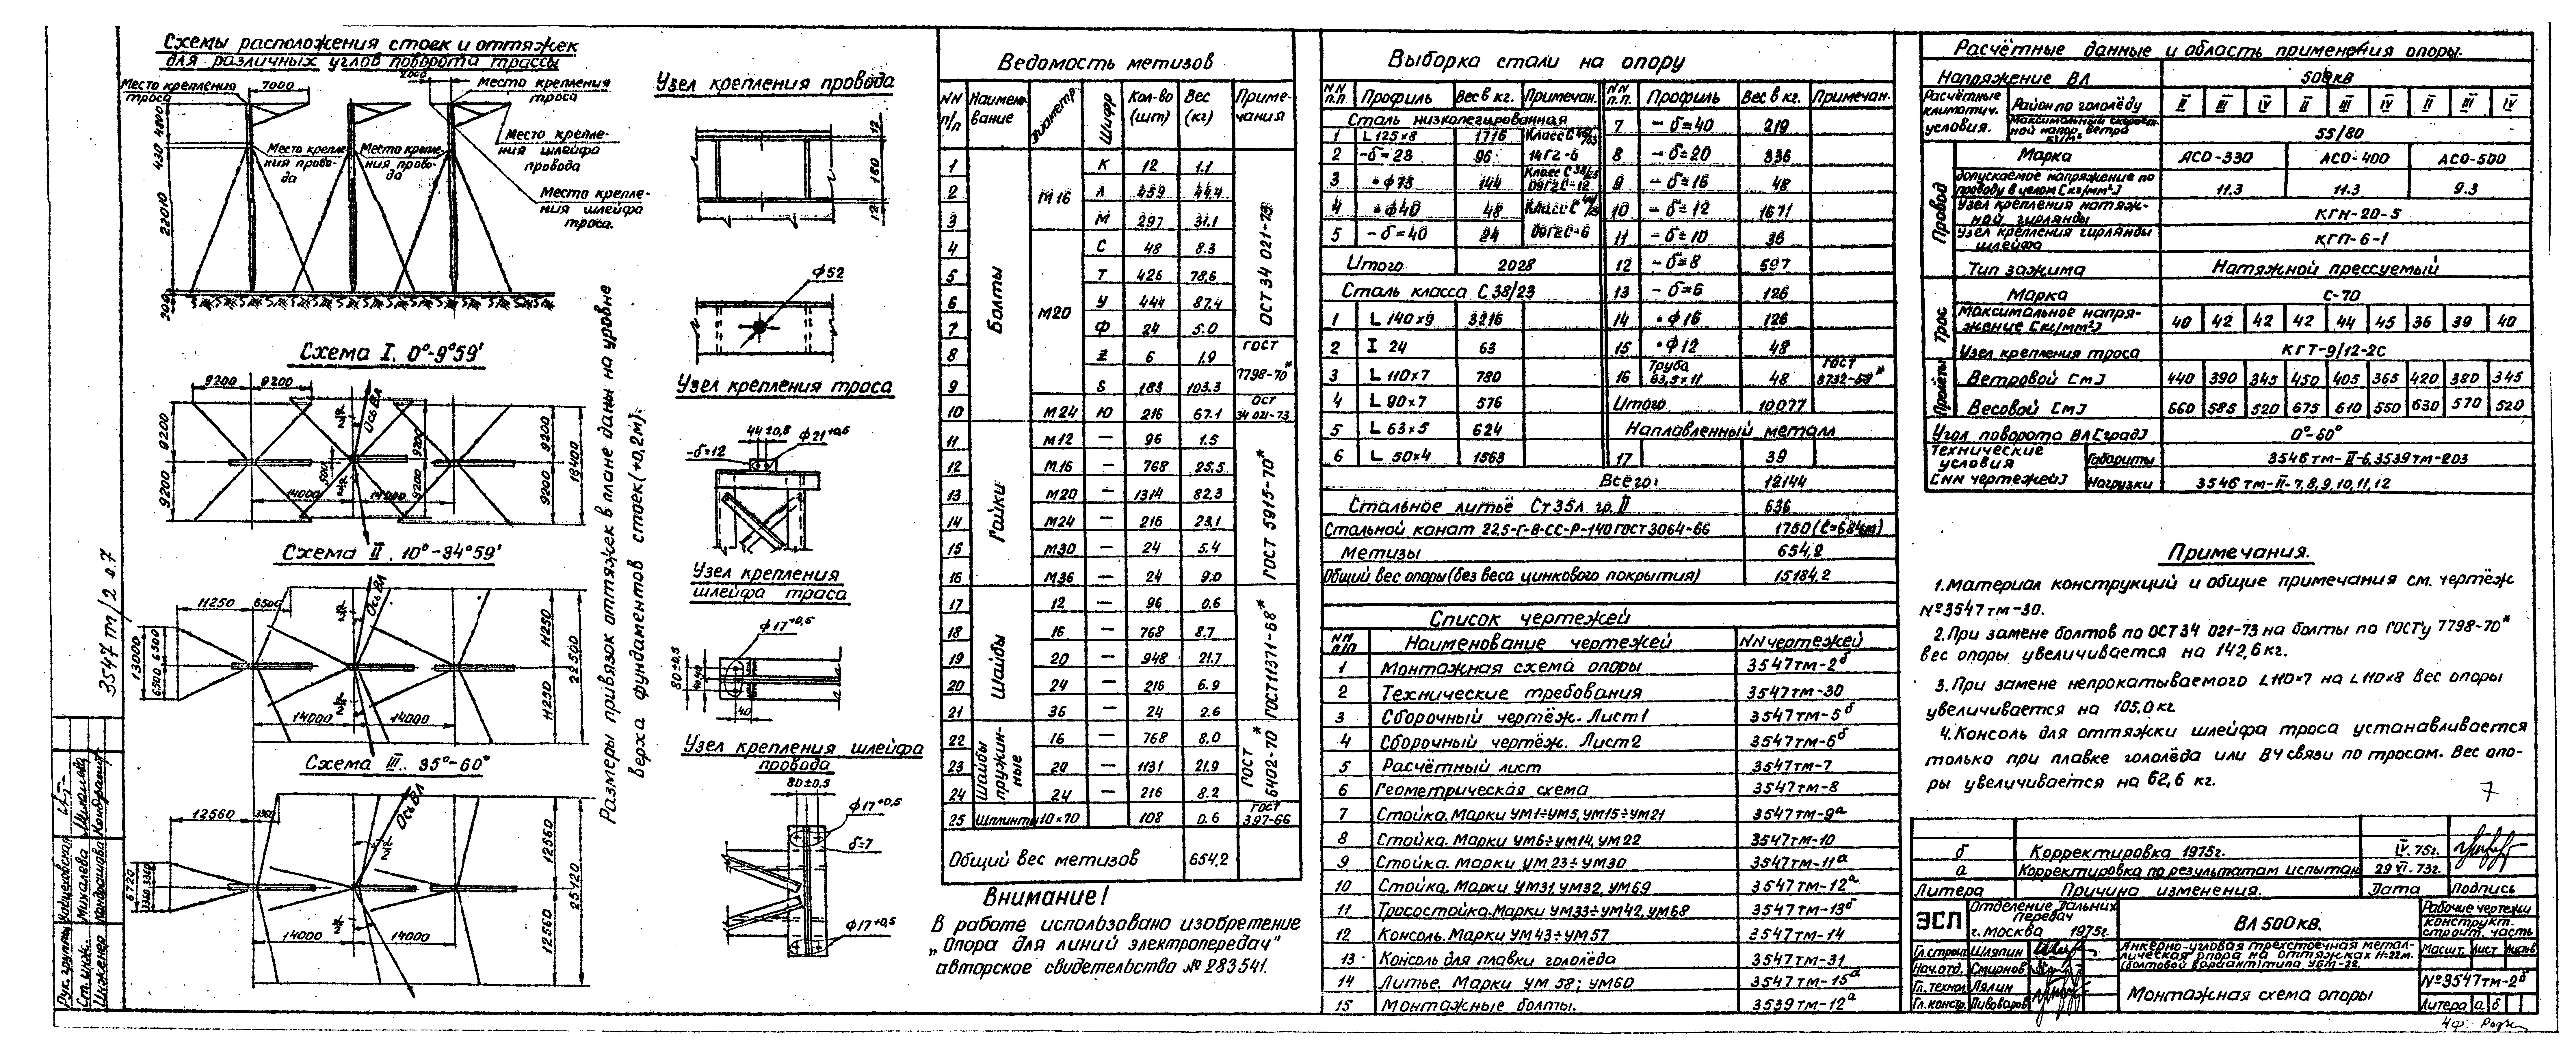 Схемы расположения стоек и оттяжек
для различных углов поворота трассы
Место крепления
троса
7000
2000
Место крепления
троса
Место крепле-
ния шлейфа
провода
Место крепле-
ния прово-
да
Место крепле-
ния прово-
да
Место крепле-
ния шлейфа
троса.
4800
430
22010
200
Схема I. 0°-9°59'
9200 9200
Ось ВЛ
9200 9200
14000 14000
9200 9200
9200 9200
18400
Схема II. 10°-34°59'
11250 6500
Ось ВЛ
13000
6500 6500
14000 14000
11250 11250
22500
Схема III. 35°-60°
12560 3360
Ось ВЛ
6720
3360 3360
14000 14000
12560 12560
25120
Размеры привязок оттяжек в плане даны на уровне
верха фундаментов стоек (+0,2м).
3547 тм/2 л.7
Рук. группы
Ст. инж. Михалева
Инженер Кондрашова
Узел крепления провода
12
180
12
ф52
Узел крепления троса
44±0,5
ф21+0,5
-δ=12
Узел крепления
шлейфа траса
ф17+0,5
80±0,5
40 40
40
Узел крепления шлейфа
провода
80±0,5
ф17+0,5
δ=7
ф17+0,5
Ведомость метизов
NN п/п Наимено-вание Диаметр Шифр Кол-во (шт) Вес (кг) Приме-чания
Болты
1 М16 К 12 1.1 ОСТ 34 021-73
2 Л 459 44.4
3 М 297 31,1
4 М20 С 48 8.3
5 Т 426 78,6
6 У 444 87.4
7 Ф 24 5.0
8 Z 6 1.9 ГОСТ 7798-70*
9 S 183 103.3
10 М24 Ю 216 67.1 ОСТ 34 021-73
Гайки
11 М12 — 96 1.5 ГОСТ 5915-70*
12 М16 — 768 25,5
13 М20 — 1314 82,3
14 М24 — 216 23,1
15 М30 — 24 5.4
16 М36 — 24 9.0
Шайбы
17 12 — 96 0.6 ГОСТ 11371-68*
18 16 — 768 8.7
19 20 — 948 21.7
20 24 — 216 6.9
21 36 — 24 2.6
Шайбы пружин-ные
22 16 — 768 8,0 ГОСТ 6402-70*
23 20 — 1131 21.9
24 24 — 216 8.2
25 Шплинты 10×70 108 0.6 ГОСТ 397-66
Общий вес метизов 654,2
Внимание!
В работе использовано изобретение
„Опора для линий электропередач"
авторское свидетельство № 283541.
Выборка стали на опору
NN п.п. Профиль Вес в кг. Примечан.
Сталь низколегированная
1 L 125×8 1716
2 -δ=23 96 14Г2-6
3 •ф75 144 09Г2С-12
4 •ф40 48
5 -δ=40 24 09Г2С-6
Итого 2028
Сталь класса С 38/23
1 L 140×9 3216
2 I 24 63
3 L 110×7 780
4 L 90×7 576
5 L 63×5 624
6 L 50×4 1563
NN п.п. Профиль Вес в кг. Примечан.
7 -δ=40 219
8 -δ=20 336
9 -δ=16 48
10 -δ=12 1671
11 -δ=10 36
12 -δ=8 597
13 -δ=6 126
14 •ф16 126
15 •ф12 48
16 Труба 63,5×11 48 ГОСТ 8732-58*
Итого 10077
Наплавленный металл
17 39
Всего: 12144
Стальное литьё Ст 35л гр. II 636
Стальной канат 22,5-Г-В-СС-Р-140 ГОСТ 3064-66 1750 (ℓ=684м)
Метизы 654,2
Общий вес опоры (без веса цинкового покрытия) 15184,2
Список чертежей
NN п/п Наименование чертежей NN чертежей
1 Монтажная схема опоры 3547тм-2б
2 Технические требования 3547тм-30
3 Сборочный чертёж. Лист 1 3547тм-5б
4 Сборочный чертёж. Лист 2 3547тм-6б
5 Расчётный лист 3547тм-7
6 Геометрическая схема 3547тм-8
7 Стойка. Марки УМ1÷УМ5, УМ15÷УМ21 3547тм-9а
8 Стойка. Марки УМ6÷УМ14, УМ22 3547тм-10
9 Стойка. Марки УМ 23÷УМ30 3547тм-11а
10 Стойка. Марки УМ31, УМ32, УМ69 3547тм-12а
11 Тросостойка. Марки УМ33÷УМ42, УМ68 3547тм-13б
12 Консоль. Марки УМ43÷УМ57 2547тм-14
13 Консоль для плавки гололёда 3547тм-31
14 Литье. Марки УМ 58; УМ60 3547тм-15а
15 Монтажные болты. 3539тм-12а
Расчётные данные и область применения опоры.
Напряжение ВЛ 500кв
Расчётные климатич. условия. Район по гололёду II III IV II III IV II III IV
Максимальный скорост-ной напор ветра кг/м² 55/80
Провод
Марка АСО-330 АСО-400 АСО-500
Допускаемое напряжение по проводу в целом [кг/мм²] 11.3 11.3 9.3
Узел крепления натяж-ной гирлянды КГН-20-5
Узел крепления гирлянды шлейфа КГП-6-1
Тип зажима Натяжной прессуемый
Трос
Марка С-70
Максимальное напря-жение [кг/мм²] 40 42 42 42 44 45 36 39 40
Узел крепления троса КГТ-9/12-2С
Пролёты
Ветровой [м] 440 390 345 450 405 365 420 380 345
Весовой [м] 660 585 520 675 610 550 630 570 520
Угол поворота ВЛ [град] 0°-60°
Технические условия [NN чертежей] Габариты 3546тм-II-6, 3539тм-203
Нагрузки 3546тм-II-7,8,9,10,11,12
Примечания.
1. Материал конструкций и общие примечания см. чертёж
№3547тм-30.
2. При замене болтов по ОСТ 34 021-73 на болты по ГОСТу 7798-70*
вес опоры увеличивается на 142,6кг.
3. При замене непрокатываемого L110×7 на L110×8 вес опоры
увеличивается на 105.0кг.
4. Консоль для оттяжки шлейфа троса устанавливается
только при плавке гололёда или ВЧ связи по тросам. Вес опо-
ры увеличивается на 62,6 кг.
7
б Корректировка 1975г. IV.75г.
а Корректировка по результатам испытан 29 VI-73г.
Литера Причина изменения. Дата Подпись
ЭСП Отделение Дальних передач
г. Москва 1975г.
ВЛ 500кв.
Рабочие чертежи
Конструкт. строит. часть
Гл. строит. Шляпин
Нач. отд. Смирнов
Гл. технол. Лялин
Гл. констр. Пивоваров
Анкерно-угловая трехстоечная метал-
лическая опора на оттяжках Н=22м.
(болтовой вариант) типа УБМ-22.
Масшт. Лист Листов
Монтажная схема опоры
№3547тм-2б
Литера а б